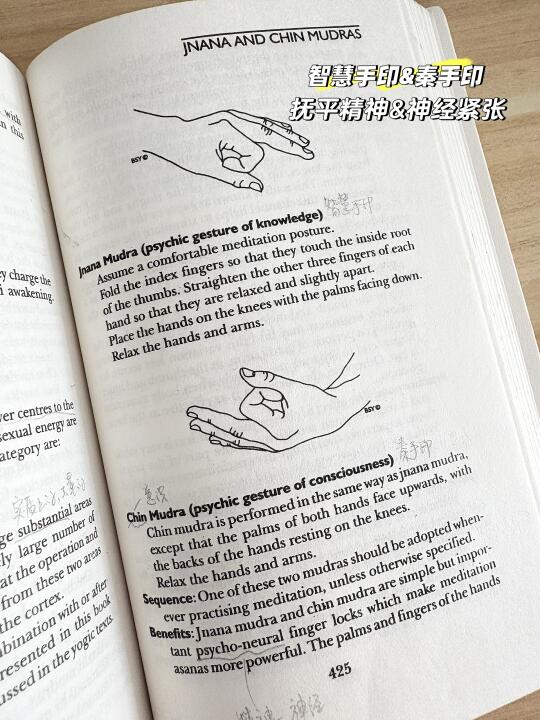 JNANA AND CHIN MUDRAS
智慧手印&秦手印
抚平精神&神经紧张
with
n this
ey charge the
i awakening.
ver centres to the
sexual energy are
ategory are:
ge substantial areas
ly large number of
at the operation and
from these two areas
the cortex.
mbination with or after
resented in this book
ussed in the yogic texts.
BSY©
智慧手印
Jnana Mudra (psychic gesture of knowledge)
Assume a comfortable meditation posture.
Fold the index fingers so that they touch the inside root
of the thumbs. Straighten the other three fingers of each
hand so that they are relaxed and slightly apart.
Place the hands on the knees with the palms facing down.
Relax the hands and arms.
BSY©
意识
秦手印
Chin Mudra (psychic gesture of consciousness)
Chin mudra is performed in the same way as jnana mudra,
except that the palms of both hands face upwards, with
the backs of the hands resting on the knees.
Relax the hands and arms.
Sequence: One of these two mudras should be adopted when-
ever practising meditation, unless otherwise specified.
Benefits: Jnana mudra and chin mudra are simple but impor-
tant psycho-neural finger locks which make meditation
asanas more powerful. The palms and fingers of the hands
425
精神 神经